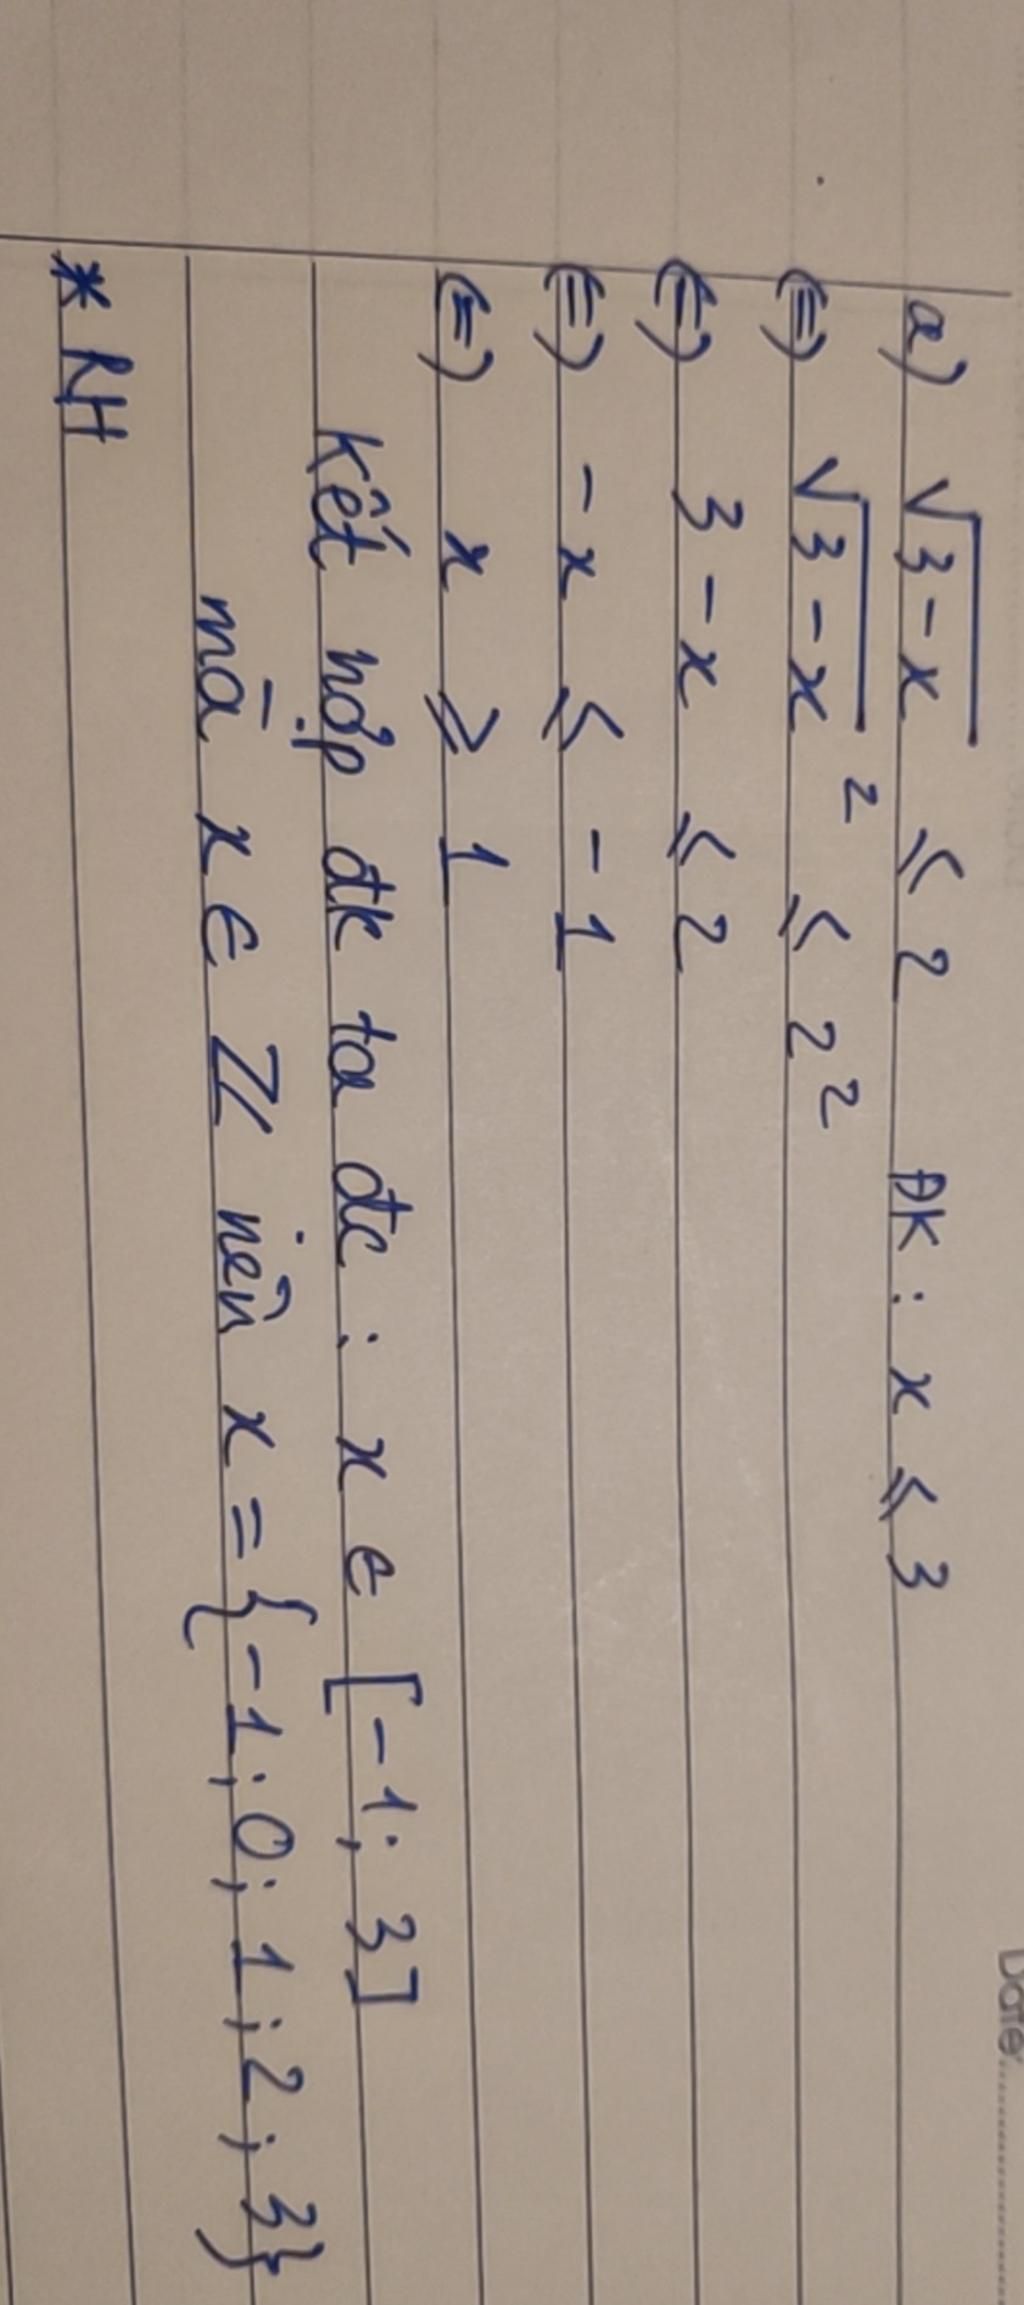 Date:
a) √3-x ⩽ 2 ĐK: x ⩽ 3
(=) √3-x ² ⩽ 2²
(=) 3-x ⩽ 2
(=) -x ⩽ -1
(=) x ⩾ 1
Kết hợp đk ta đc: x ∈ [-1; 3]
mà x ∈ Z nên x = {-1; 0; 1; 2; 3}
* KH